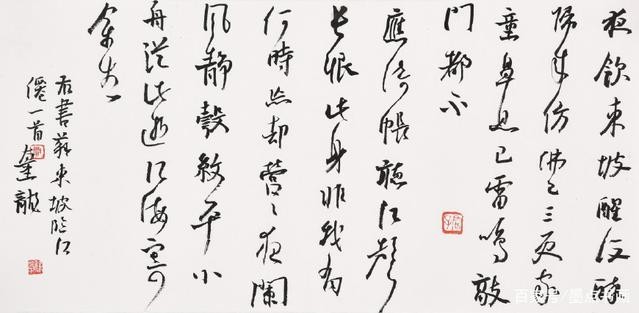 夜飲東坡醒復醉
歸来仿佛三更家
童鼻息已雷鳴敲
門都不
應倚帳聽江聲
長恨此身非我有
何時忘却營〻夜闌
風静縠紋平小
舟從此逝江海寄
余生
右書蘇東坡臨江
僊一首
百家号/墨点书画